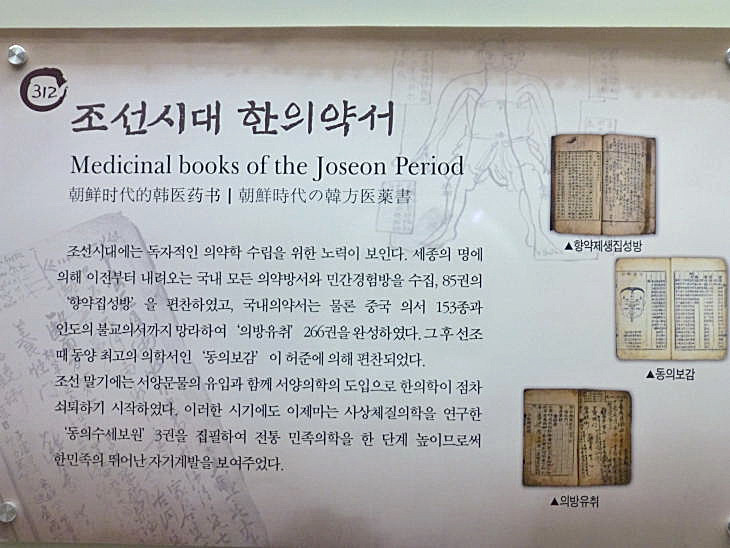 312
조선시대 한의약서
Medicinal books of the Joseon Period
朝鲜时代的韩医药书 | 朝鮮時代の韓方医薬書
조선시대에는 독자적인 의약학 수립을 위한 노력이 보인다. 세종의 명에
의해 이전부터 내려오는 국내 모든 의약방서와 민간경험방을 수집, 85권의
‘향약집성방’을 편찬하였고, 국내의약서는 물론 중국 의서 153종과
인도의 불교의서까지 망라하여 ‘의방유취’ 266권을 완성하였다. 그 후 선조
때 동양 최고의 의학서인 ‘동의보감’이 허준에 의해 편찬되었다.
조선 말기에는 서양문물의 유입과 함께 서양의학의 도입으로 한의학이 점차
쇠퇴하기 시작하였다. 이러한 시기에도 이제마는 사상체질의학을 연구한
‘동의수세보원’ 3권을 집필하여 전통 민족의학을 한 단계 높이므로써
한민족의 뛰어난 자기계발을 보여주었다.
▲향약제생집성방
▲동의보감
▲의방유취